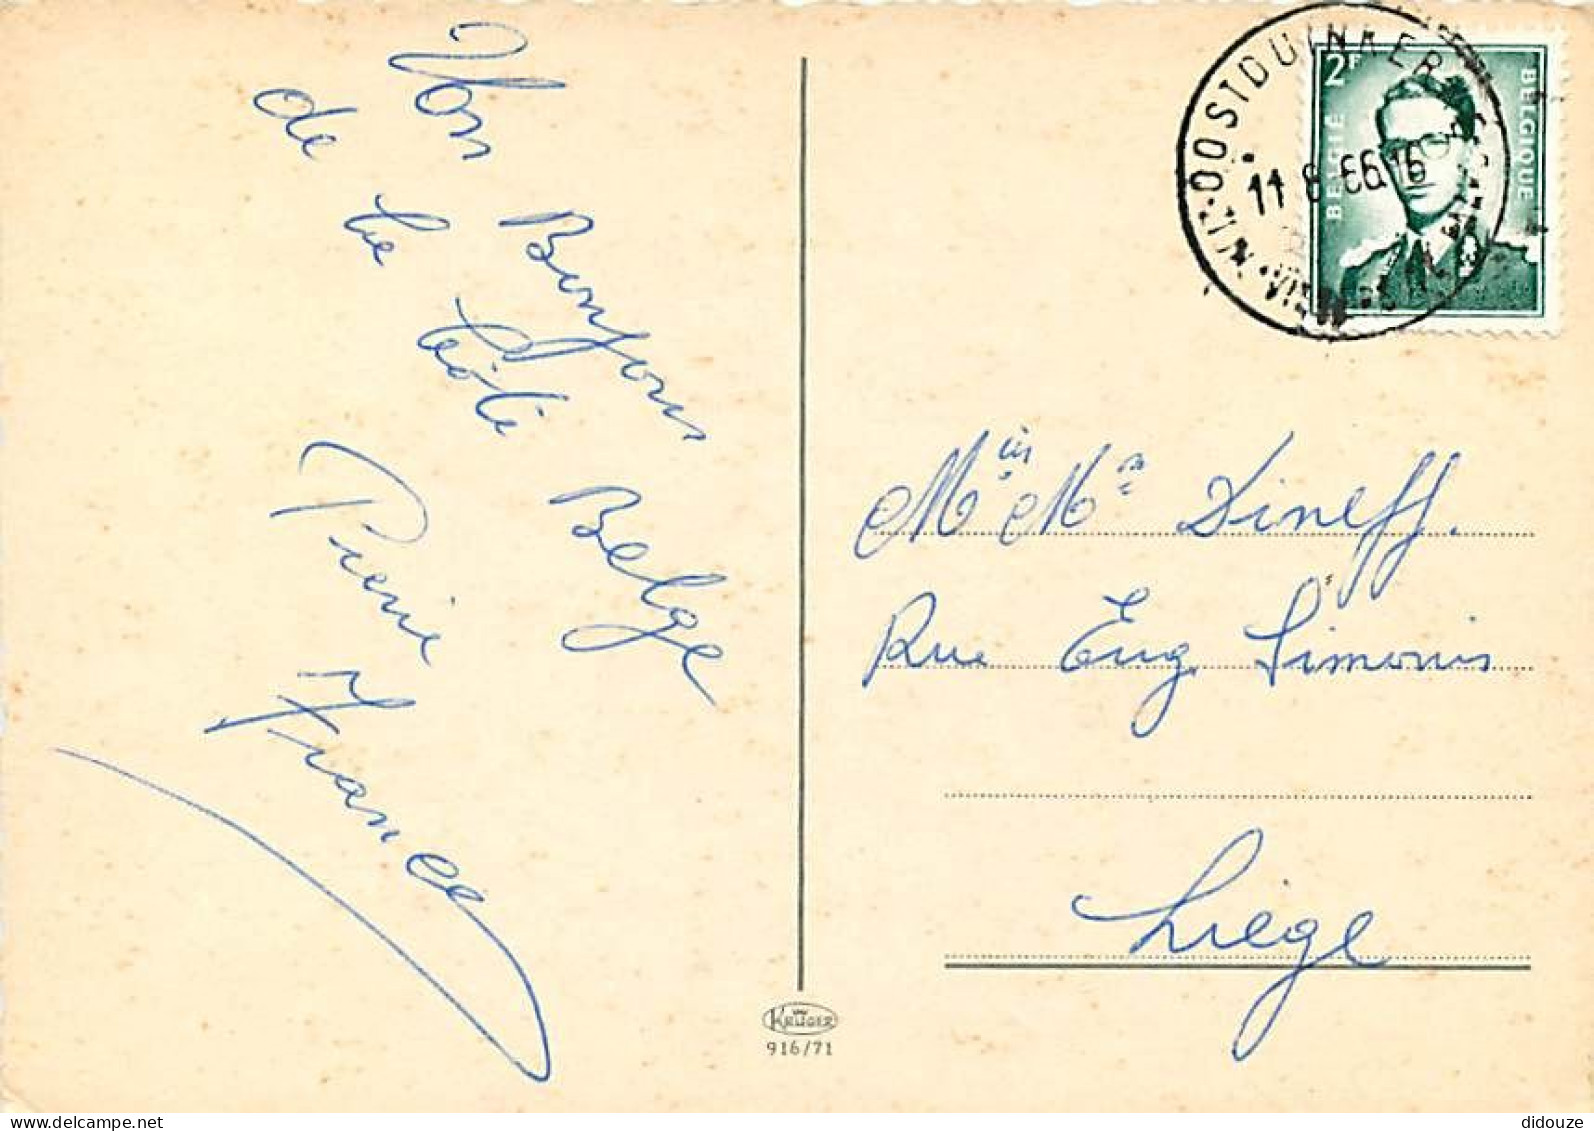 Bon Bonjour
de la Côte Belge
Pierre
France
OOSTDUINKER
11 8 66 16
2F
BELGIË
BELGIQUE
Mr Me Dineff.
Rue Eug. Simonis
Liège
KRÜGER
916/71
delcampe.net
didouze